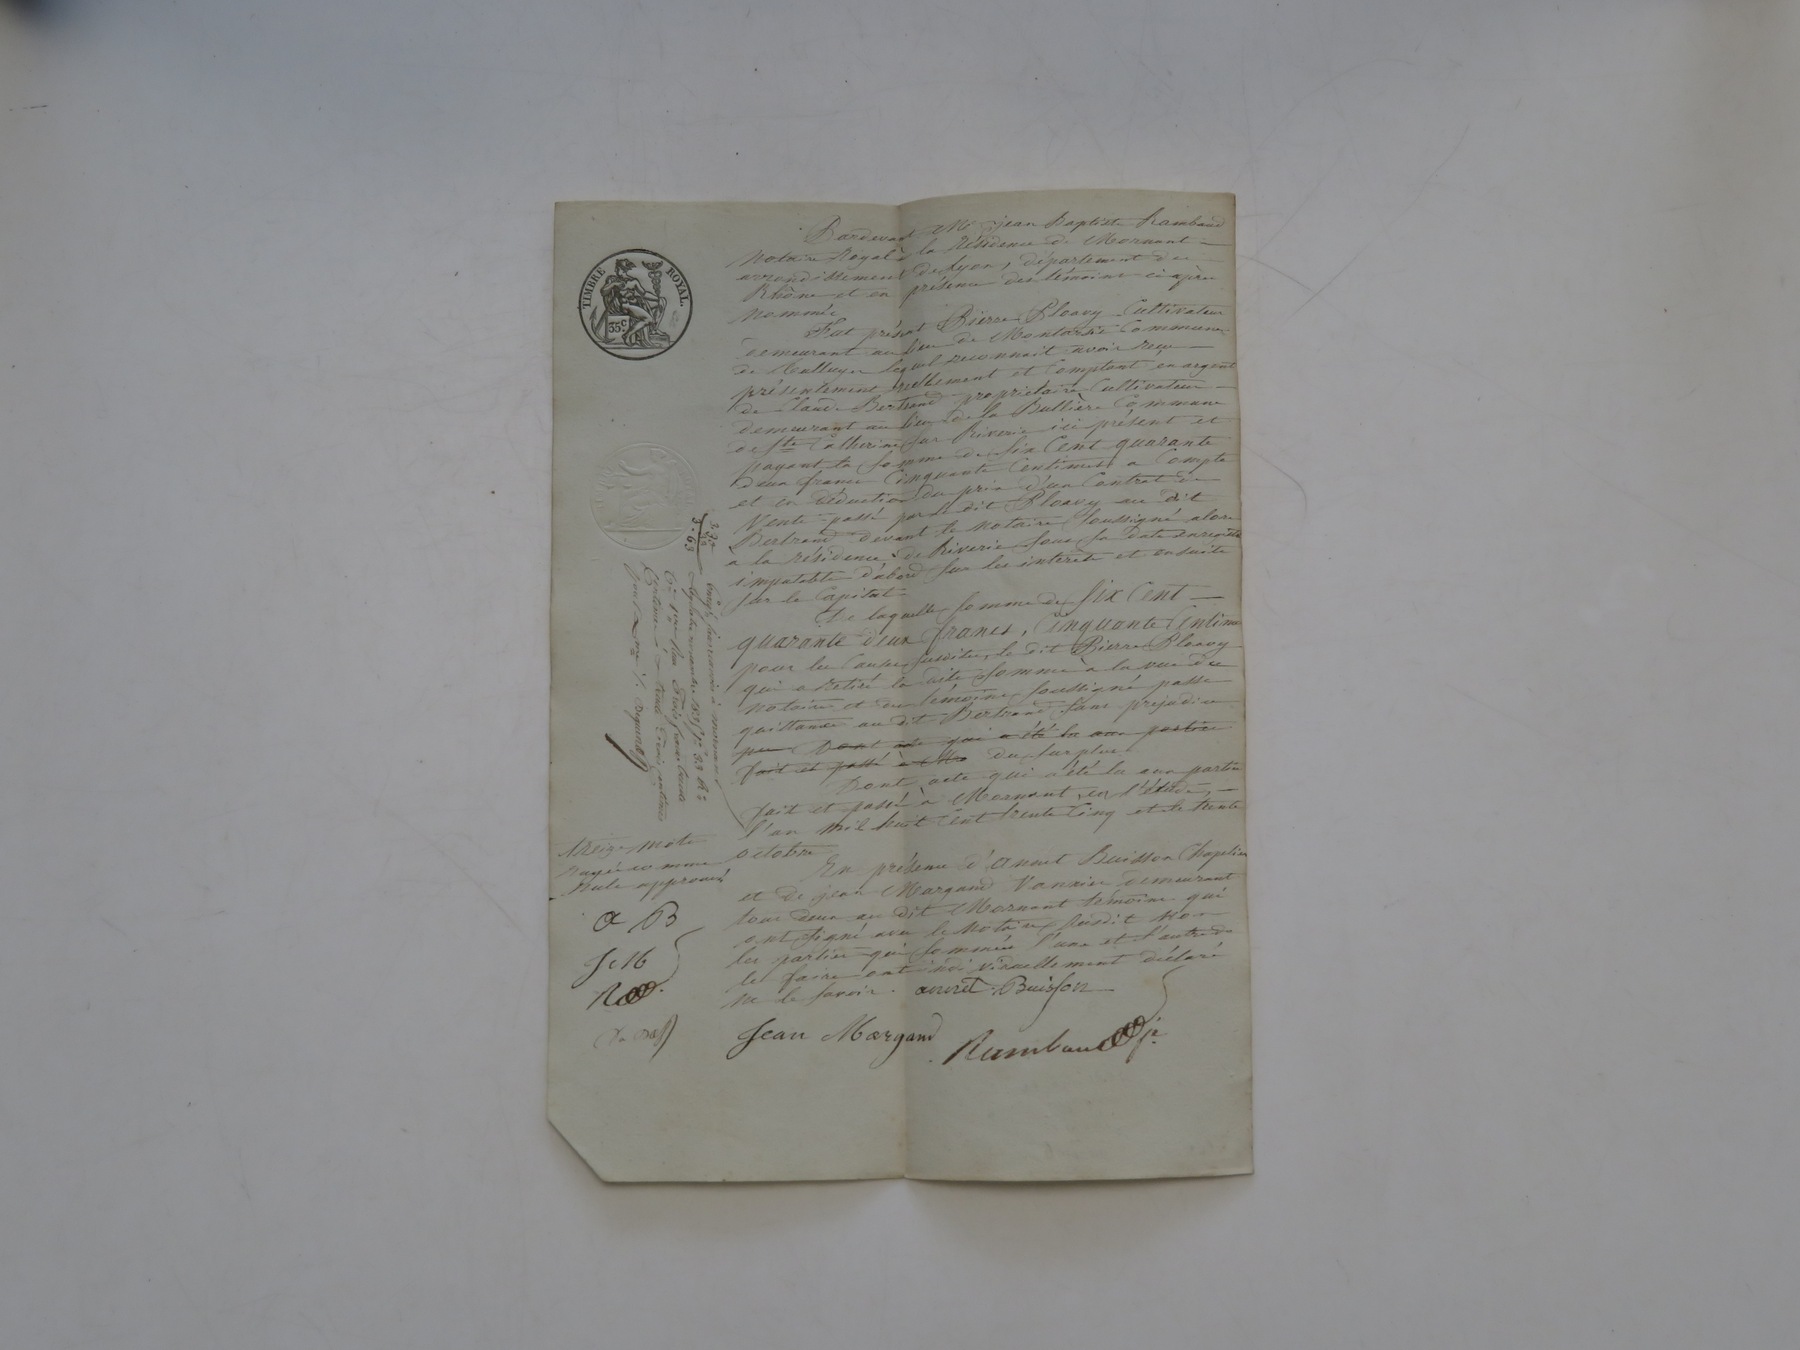 TIMBRE ROYAL.
35c.
Pardevant Me jean Baptiste Rambaud
Notaire Royal à la résidence de Mornant
arrondissement de Lyon, département du
Rhône et en présence des témoins ci après
Nommés
Fut présent Pierre Ploavy Cultivateur
demeurant au lieu de Commune
de lequel reconnait avoir reçu
présentement réellement et Comptant en argent
de Claude Bertrand propriétaire Cultivateur
demeurant au lieu de la Bullière Commune
de Ste Catherine sur Riverie ici présent et
payant la somme de six Cent quarante
deux francs Cinquante Centimes a Compte
et en déduction du prix d'un Contrat de
Vente passé par le dit Ploavy au dit
Bertrand devant le notaire soussigné alors
a la résidence de Riverie sous sa date enregistré
imputable d'abord sur les intérêts et ensuite
sur le Capital
De laquelle somme de six Cent
quarante deux francs, Cinquante Centimes
pour les Causes susdites, le dit Pierre Ploavy
qui a retiré la dite somme à la vue du
notaire et des témoins soussignés passe
quittance au dit Bertrand sans prejudice
Dont acte qui a été lu aux parties
fait et passé à du surplus
Dont acte qui a été lu aux parties
fait et passé à Mornant en l'étude,
l'an mil huit cent trente cinq et le trente
octobre
En présence d'annet Buisson Chapelier
et de jean Margand Vannier demeurant
tous deux au dit Mornant témoins qui
ont signé avec le Notaire susdit Non
les parties qui sommées l'une et l'autre de
le faire ont individuellement déclaré
ne le savoir. annet Buisson
Jean Margand
Rambaud
3.30
33
3.63
treize mots
rayés comme
nuls approuvés
a B
J M
R